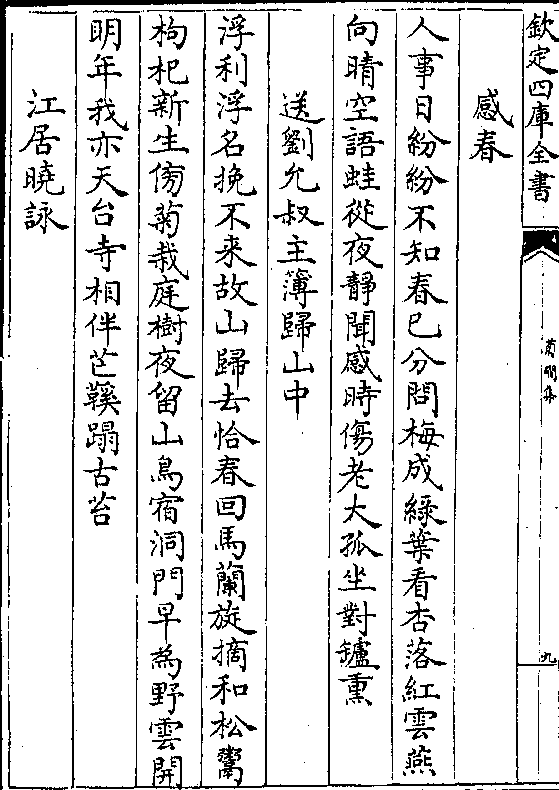 欽定四庫全書
菊磵集
九
感春
人事日紛紛不知春已分問梅成綠葉看杏落紅雲燕
向晴空語蛙從夜靜聞感時傷老大孤坐對鑪熏
送劉允叔主簿歸山中
浮利浮名挽不来故山歸去恰春回馬蘭旋摘和松鬻
枸杞新生傍菊栽庭樹夜留山鳥宿洞門早為野雲開
明年我亦天台寺相伴芒鞵蹋古苔
江居曉詠